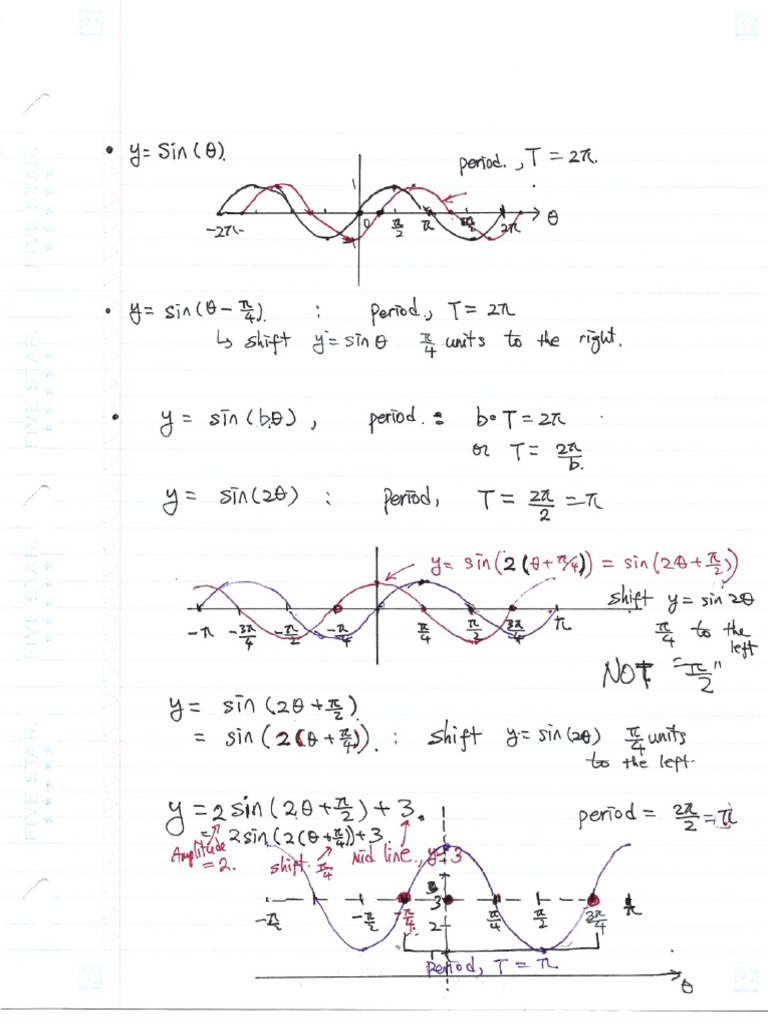 • y = Sin(θ).
period., T = 2π.
1
-2π
0
π/2
π
3π/2
2π
θ
-1
• y = sin(θ - π/4). : period, T = 2π
↳ shift y = sinθ π/4 units to the right.
• y = sin(bθ), period. : b·T = 2π
or T = 2π/b.
y = sin(2θ) : period, T = 2π/2 = π
y = sin(2(θ+π/4)) = sin(2θ+π/2)
shift y = sin2θ
π/4 to the
left
NOT "π/2"
-π
-3π/4
-π/2
-π/4
π/4
π/2
3π/4
π
y = sin(2θ+π/2)
= sin(2(θ+π/4)). : shift y = sin(2θ) π/4 units
to the left.
y = 2sin(2θ+π/2)+3.
period = 2π/2 = π
= 2sin(2(θ+π/4))+3.
Amplitude
= 2.
shift π/4
mid line, y=3
3
2
-π/2
-π/2
-π/4
π/4
π/2
3π/4
π
period, T = π
θ
FIVE STAR.
FIVE STAR.
FIVE STAR.
FIVE STAR.